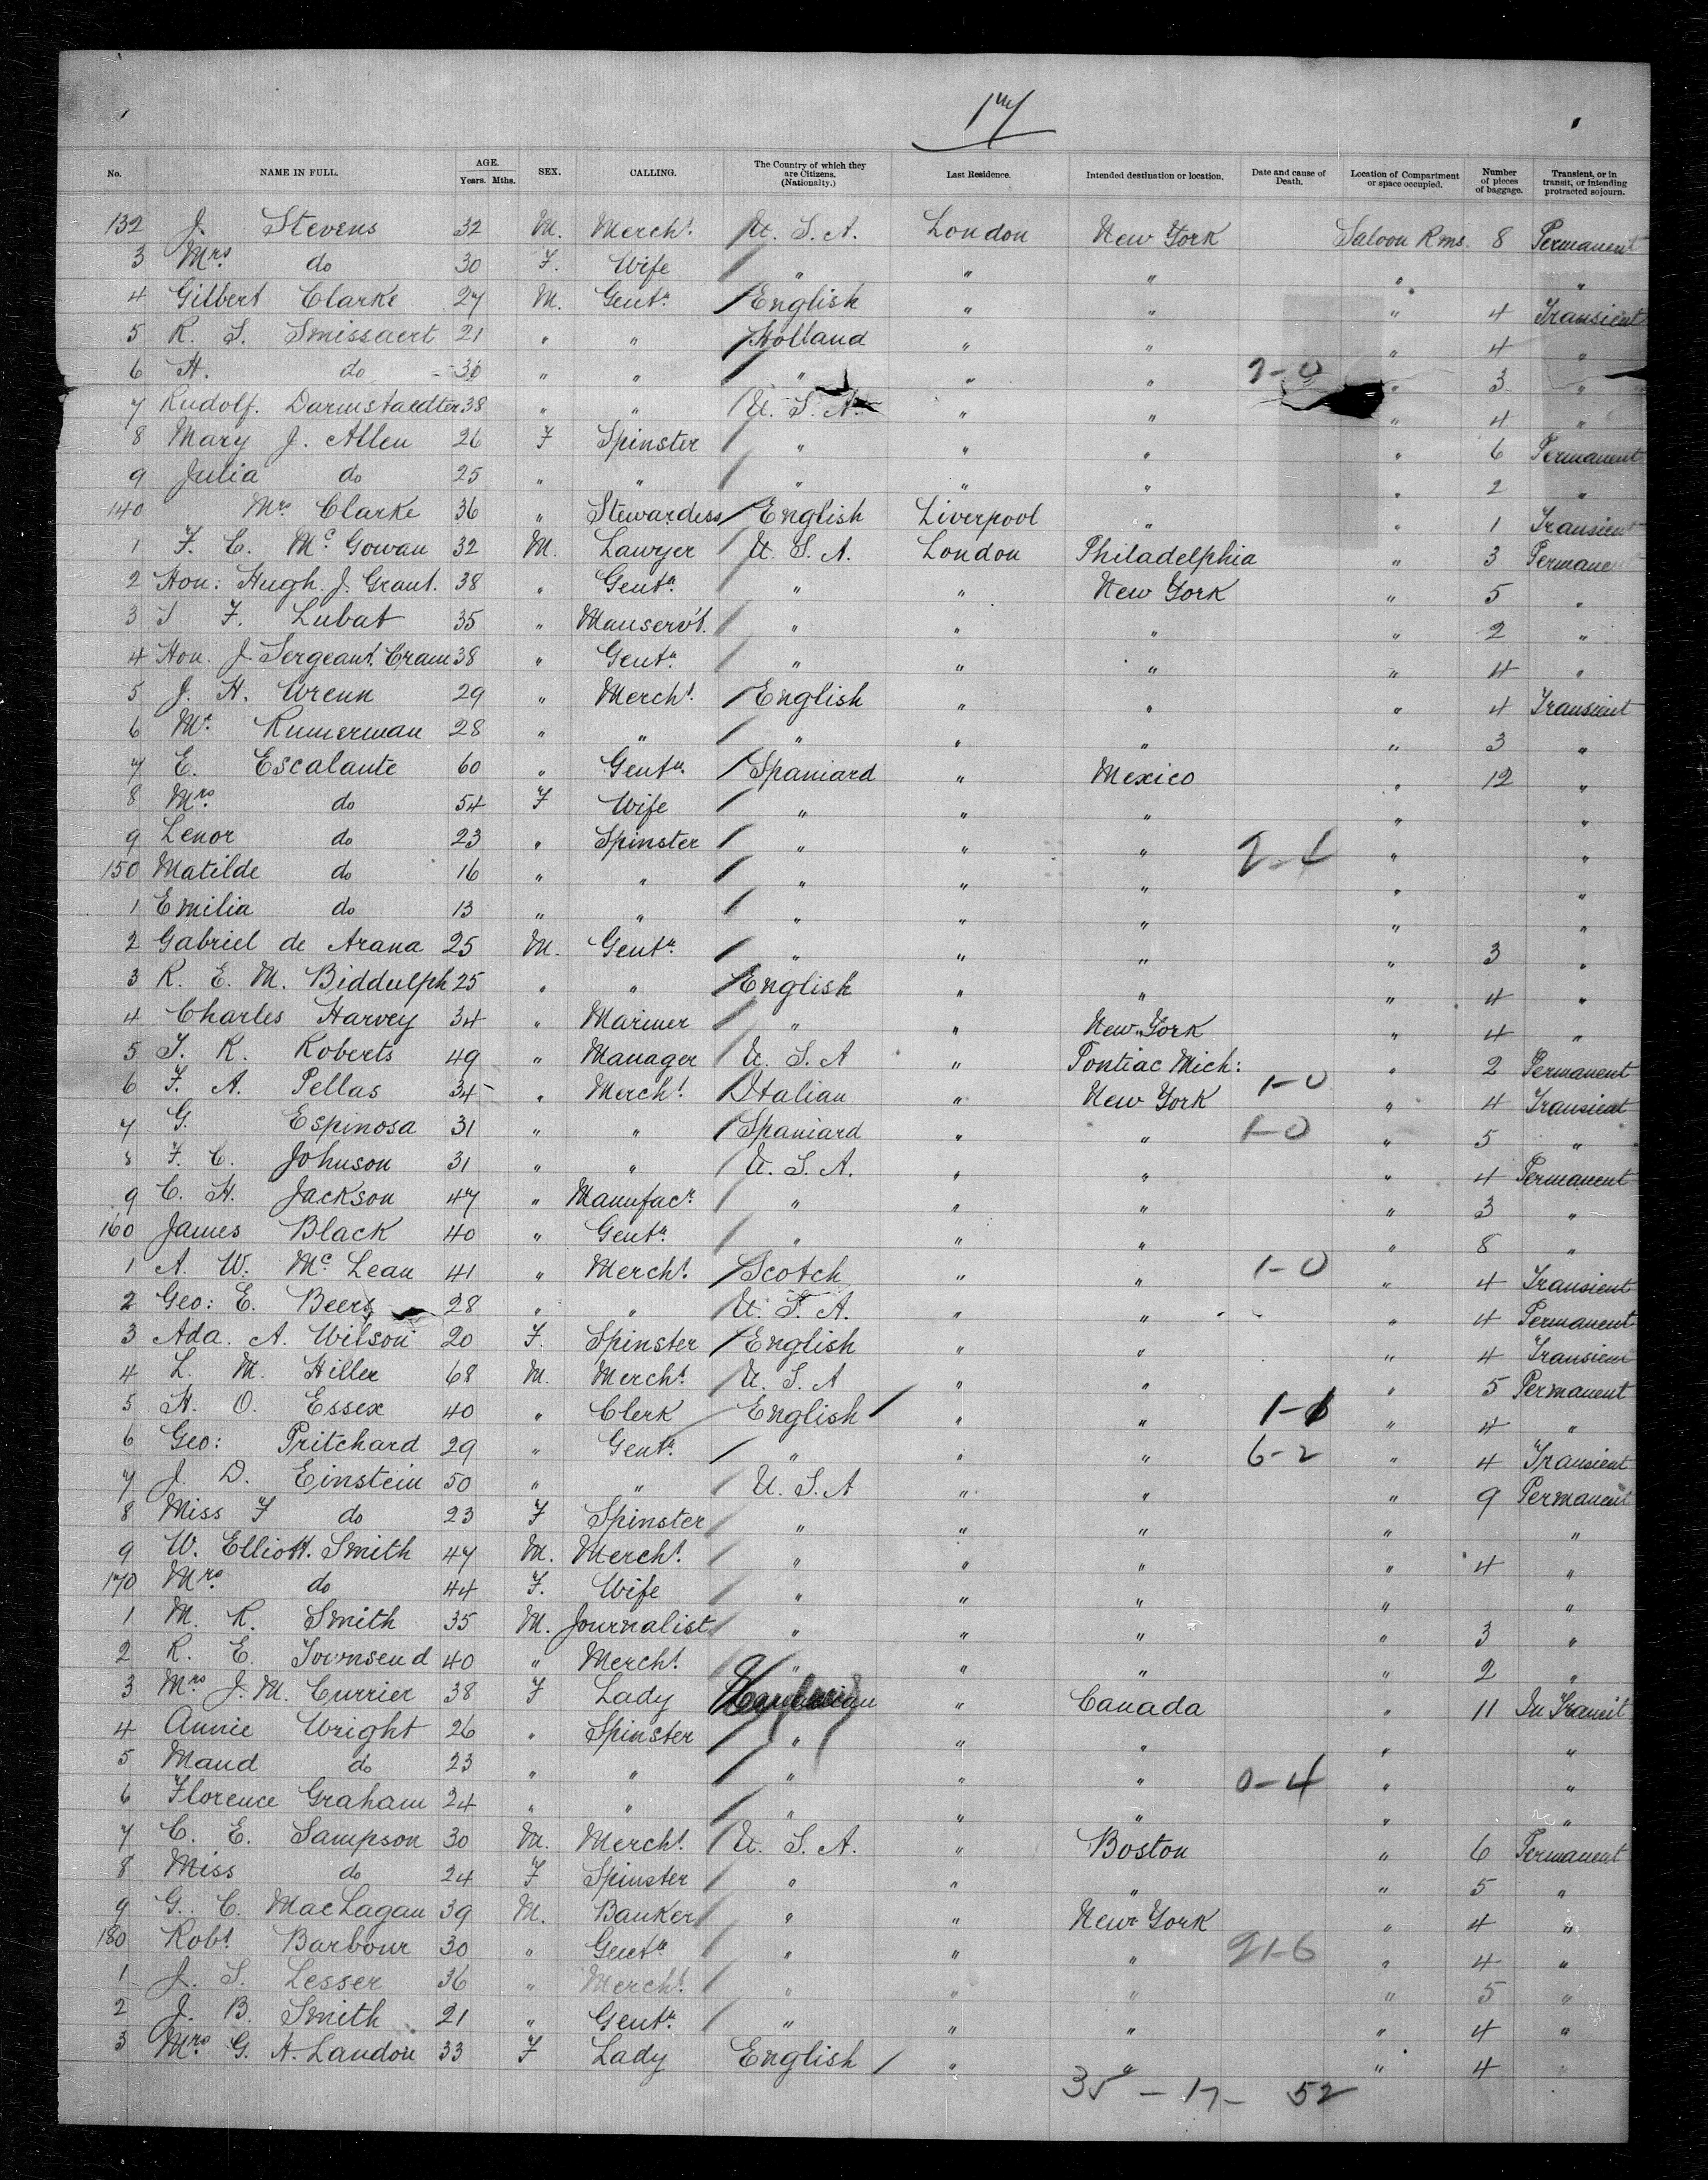 1st
No. NAME IN FULL. AGE. Years. Mths. SEX. CALLING. The Country of which they are Citizens. (Nationalty.) Last Residence. Intended destination or location. Date and cause of Death. Location of Compartment or space occupied. Number of pieces of baggage. Transient, or in transit, or intending protracted sojourn.
132 J. Stevens 32 M. Mercht. U. S. A. London New York Saloon Rms. 8 Permanent
3 Mrs do 30 F. Wife " " " " "
4 Gilbert Clarke 27 M. Gentn. English " " " 4 Transient
5 R. S. Smissaert 21 " " Holland " " " 4 "
6 H. do 30 " " " " " 2-0 " 3 "
7 Rudolf. Darmstaedter 38 " " U. S. A. " " " 4 "
8 Mary J. Allen 26 F Spinster " " " " 6 Permanent
9 Julia do 25 " " " " " " 2 "
140 Mrs Clarke 36 " Stewardess English Liverpool " " 1 Transient
1 F. C. Mc Gowan 32 M. Lawyer U. S. A. London Philadelphia " 3 Permanent
2 Hon: Hugh. J. Grant. 38 " Gentn. " " New York " 5 "
3 F. Lubat 35 " Manserv't. " " " " 2 "
4 Hon. J. Sergeant. Cram 38 " Gentn. " " " " 4 "
5 J. H. Wrenn 29 " Mercht. English " " " 4 Transient
6 Mr. 28 " " " " " " 3 "
7 E. Escalante 60 " Gentn. Spaniard " Mexico " 12 "
8 Mrs. do 54 F Wife " " " " "
9 Lenor do 23 " Spinster " " " 2-4 " "
150 Matilde do 16 " " " " " " "
1 Emilia do 13 " " " " " " "
2 Gabriel de Arana 25 M. Gentn. " " " " 3 "
3 R. E. M. Biddulph 25 " " English " " " 4 "
4 Charles Harvey 34 " Mariner " " New York " 4 "
5 T. R. Roberts 49 " Manager U. S. A " Pontiac Mich: " 2 Permanent
6 F. A. Pellas 34 " Mercht. Italian " New York 1-0 " 4 Transient
7 G. Espinosa 31 " " Spaniard " " 1-0 " 5 "
8 F. C. Johnson 31 " " U. S. A. " " " 4 Permanent
9 C. H. Jackson 47 " Manufacr. " " " " 3 "
160 James Black 40 " Gentn. " " " " 8 "
1 A. W. Mc Lean 41 " Mercht. Scotch " " 1-0 " 4 Transient
2 Geo: E. Beers 28 " " U. S. A. " " " 4 Permanent
3 Ada. A. Wilson 20 F. Spinster English " " " 4 Transient
4 L. M. Hiller 68 M. Mercht. U. S. A " " " 5 Permanent
5 H. O. Essex 40 " Clerk English " " " 4 "
6 Geo: Pritchard 29 " Gentn. " " " 6-2 " 4 Transient
7 J. D. Einstein 50 " " U. S. A " " " 9 Permanent
8 Miss F do 23 F Spinster " " " " "
9 W. Elliott. Smith 47 M. Mercht. " " " " 4 "
170 Mrs. do 44 F. Wife " " " " "
1 M. R. Smith 35 M. Journalist " " " " 3 "
2 R. E. Townsend 40 " Mercht. " " " " 2 "
3 Mrs J. M. Currier 38 F Lady " Canada " 11 In Transit
4 Annie Wright 26 " Spinster " " " " "
5 Maud do 23 " " " " " 0-4 " "
6 Florence Graham 24 " " " " " " "
7 C. E. Sampson 30 M. Mercht. U. S. A. " Boston " 6 Permanent
8 Miss do 24 F Spinster " " " " 5 "
9 G. C. MacLagan 39 M. Banker " " New York " 4 "
180 Robt. Barbour 30 " Gentn. " " " 21-6 " 4 "
1 J. S. Lesser 36 " Mercht. " " " " 5 "
2 J. B. Smith 21 " Gentn. " " " " 4 "
3 Mrs. G. A. Landon 33 F Lady English " " " 4
35 - 17 - 52